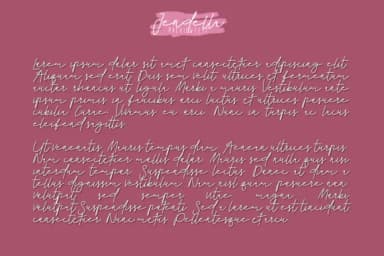 Jendella
lorem ipsum dolor sit amet consectetuer adipiscing elit
Aliquam sed erat. Duis sem velit ultrices et fermentum
auctor rhoncus ut ligula. Morbi a mauris. Vestibulum ante
ipsum primis in faucibus orci luctus et ultrices posuere
cubilia Curae. Vivamus eu orci. Nunc in turpis ac lacus
eleifend sagittis
Ut venenatis. Mauris tempus dum. Aenean ultrices turpis.
Nam consectetuer mollis dolor. Mauris sed nulla quis nisi
interdum tempor. Suspendisse lectus. Donec ut dum a
tellus dignissim vestibulum. Nam nisl quam posuere non
volutpat sed semper vitae magna. Morbi
volutpat. Suspendisse potenti. Sed a lorem ut est tincidunt
consectetuer. Nunc metus. Pellentesque et arcu